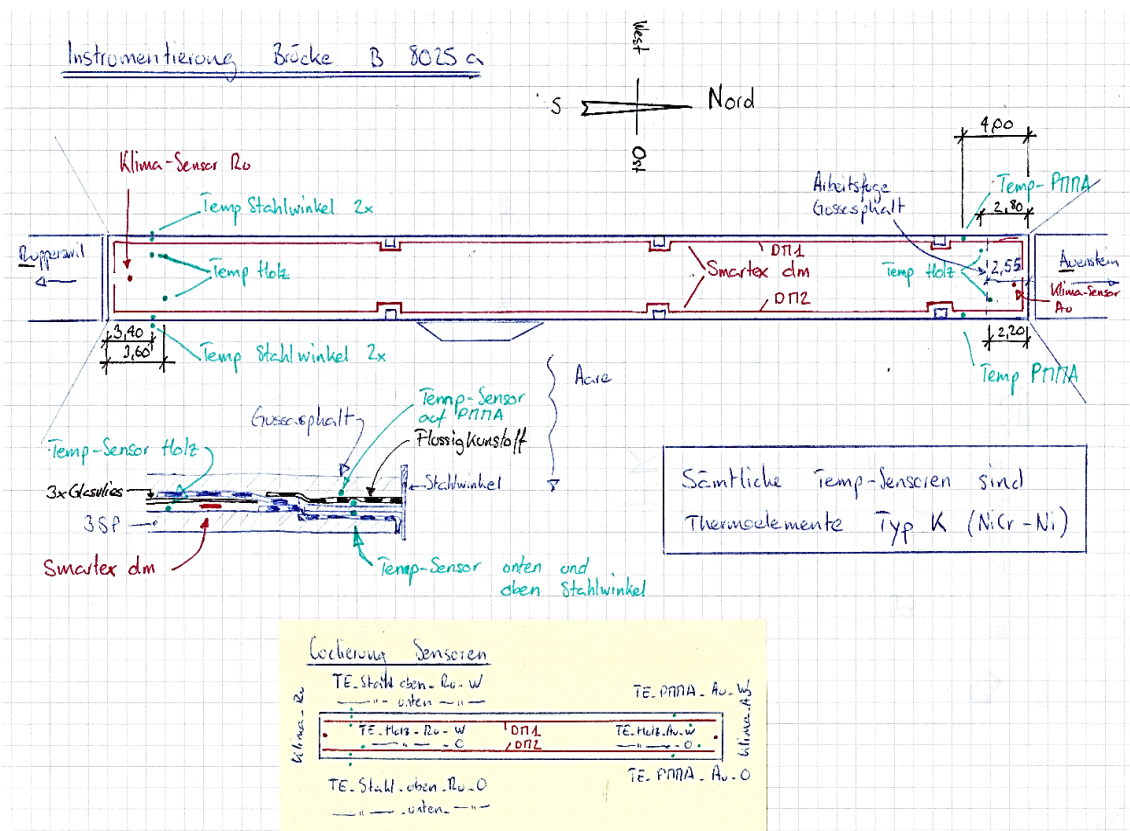 Instrumentierung Brücke B 8025 a
West
S Nord
Ost
4,00
Klima-Sensor Ru
Arbeitsfuge
Gussasphalt
Temp-PMMA
2,80
Temp Stahlwinkel 2x
Rupperswil
Temp Holz
DM1
Smartex dm
DM2
Temp Holz
2,55
Auenstein
Klima-Sensor
Au
3,40
3,60
Temp Stahlwinkel 2x
2,20
Temp PMMA
Aare
Gussasphalt
Temp-Sensor
auf PMMA
Flüssigkunstoff
Temp-Sensor Holz
3x Glasvlies
Stahlwinkel
3SP
Smartex dm
Temp-Sensor unten und
oben Stahlwinkel
Sämtliche Temp-Sensoren sind
Thermoelemente Typ K (NiCr-Ni)
Codierung Sensoren
TE_Stahl_oben_Ru_W
—"— unten —"—
TE_PMMA_Au_W
Klima_Ru
TE_Holz_Ru_W
—"— O
DM1
DM2
TE_Holz_Au_W
—"— O
Klima_Au
TE_Stahl_oben_Ru_O
—"—_unten_—"—
TE_PMMA_Au_O